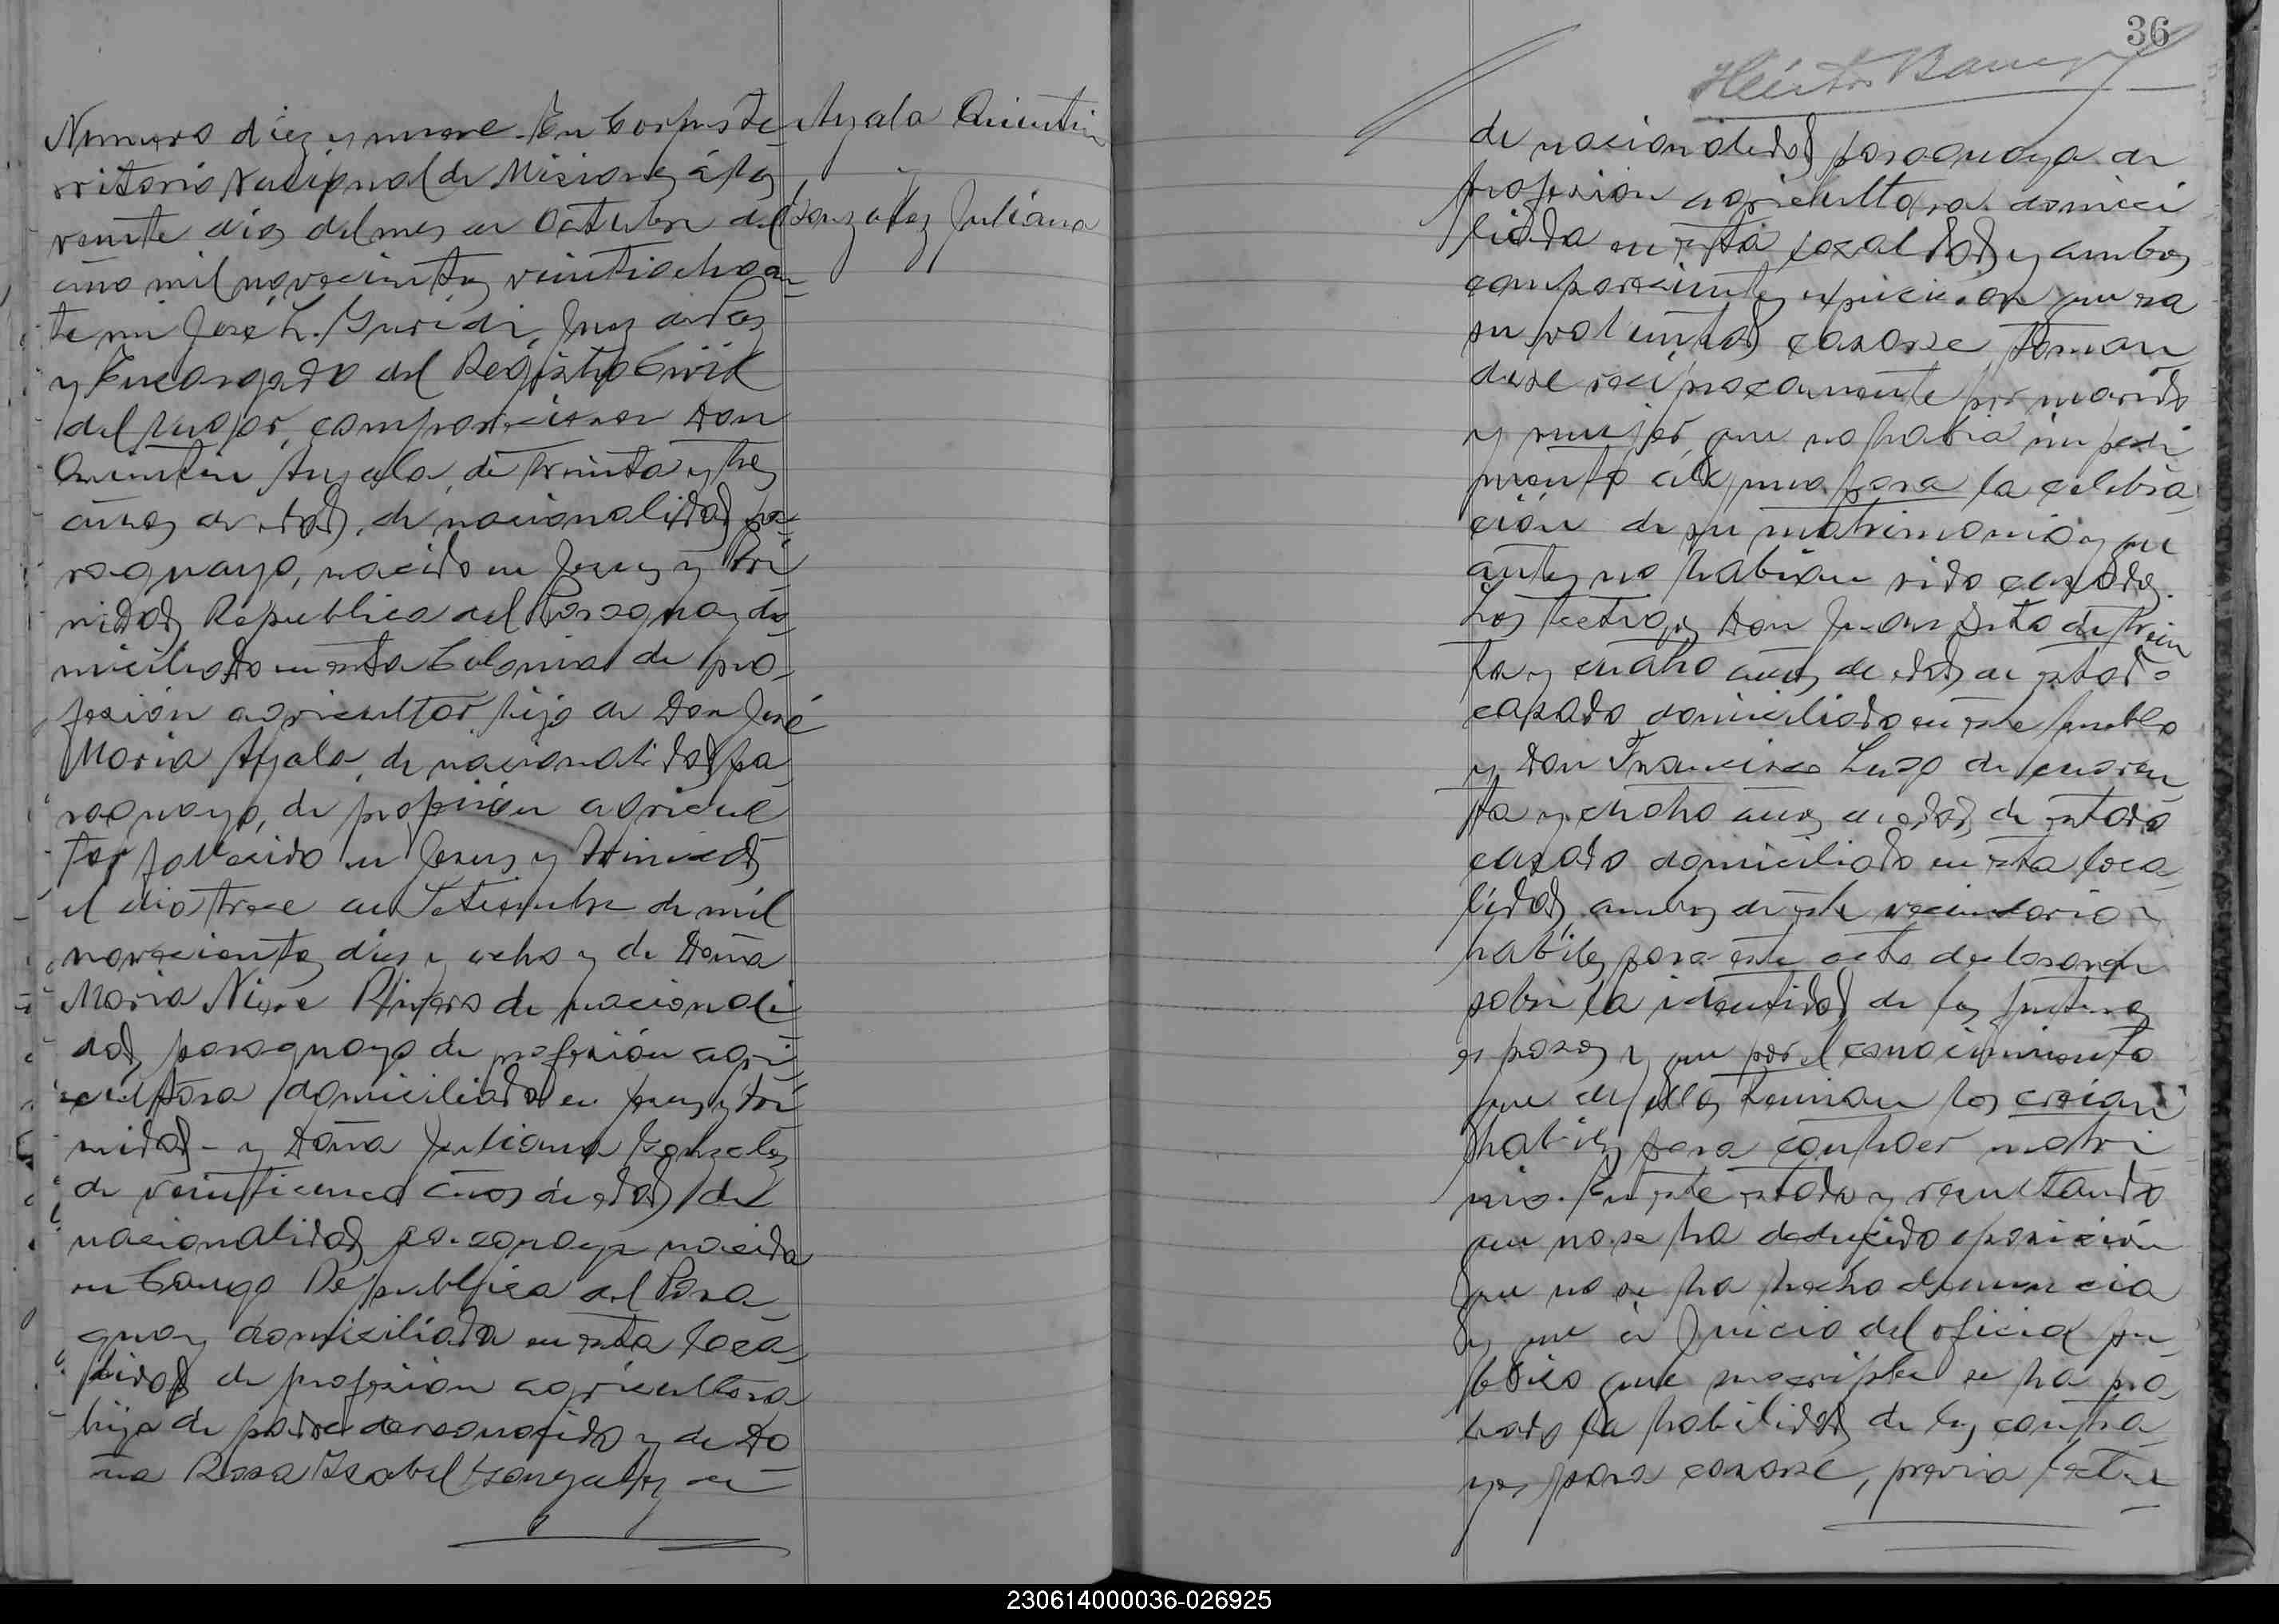 Numero diez y nueve. En Corpus Te-
rritorio Nacional de Misiones á los
veinte dias del mes de Octubre del
año mil novecientos veintiocho an-
te mi José L. Guridi, Juez de Paz
y Encargado del Registro Civil
del lugar, comparecieron Don
Quintin Ayala, de treinta y tres
años de edad, de nacionalidad pa-
raguayo, nacido en Jesus y Tri
nidad Republica del Paraguay do-
miciliado en esta Colonia de pro-
fesion agricultor hijo de Don José
Maria Ayala, de nacionalidad pa
raguayo, de profesión agricul
tor fallecido en Jesus y Trinidad
el dia trece de Setiembre de mil
novecientos diez y ocho y de Doña
Maria Nieve de nacionali
dad paraguaya de profesión agri
cultora domiciliada en Jesus y Tri
nidad - y Doña Juliana Gonzalez
de veinticinco años de edad, de
nacionalidad paraguaya nacida
en Cangó Republica del Para
guay domiciliada en esta loca-
lidad de profesion agricultora
hija de padre desconocido y de Do
ña Rosa Isabel Gonzalez de
Ayala Quintin
y
González Juliana
36
Héctor
de nacionalidad paraguaya de
profesion agricultora domici
liada en esta localidad y ambos
comparecientes que era
su voluntad casarse toman
dose reciprocamente por marido
y mujer, que no habia impedi
mento alguno para la celebra-
ción de su matrimonio y que
antes no habian sido casados.
Los testigos Don Juan de trein
ta y cuatro años de edad de estado
casado domiciliado en este pueblo
y Don Francisco Lugo de cuaren
ta y ocho años de edad, de estado
casado domiciliado en esta loca-
lidad, ambos de este vecindario y
habiles para este acto declararon
sobre la identidad de los futuros
esposos y que por el conocimiento
que de ellos tenian los creian
habiles para contraer matri
nio. En este estado y resultando
que no se ha deducido oposición
que no se ha hecho denuncia
y que á Juicio del oficial pu-
blico que suscribe se ha pro
bado la habilidad de los contra-
yes para casarse, previa lectu
230614000036-026925